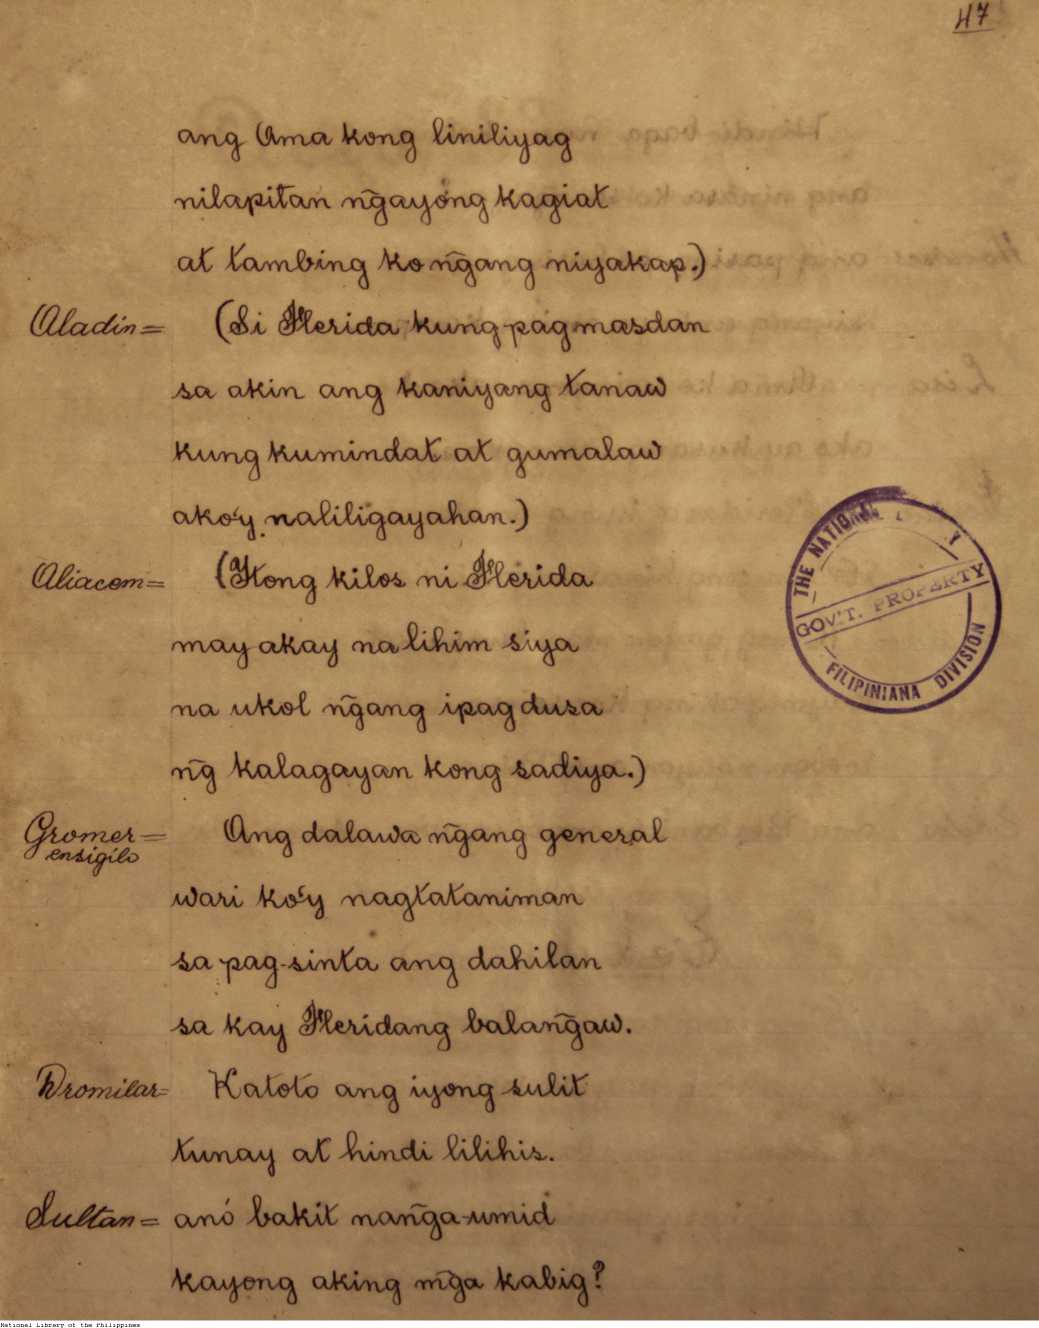 47
ang Ama kong liniliyag
nilapitan ñgayóng kagiat
at tambing ko ñgang niyakap.)
Aladin= (Si Flerida kung pagmasdan
sa akin ang kaniyang tanaw
kung kumindat at gumalaw
ako'y naliligayahan.)
Aliacem= (Itong kilos ni Flerida
may akay na lihim siya
na ukol ñgang ipagdusa
ñg kalagayan kong sadiya.)
Gromer= Ang dalawa ñgang general
ensigilo
wari ko'y nagtataniman
sa pag-sinta ang dahilan
sa kay Fleridang balañgaw.
Dromilar= Katoto ang iyong sulit
tunay at hindi lilihis.
Sultan= anó bakit nañga-umid
kayong aking mg̃a kabig?
THE NATIONAL
GOV'T. PROPERTY
FILIPINIANA DIVISION
National Library of the Philippines